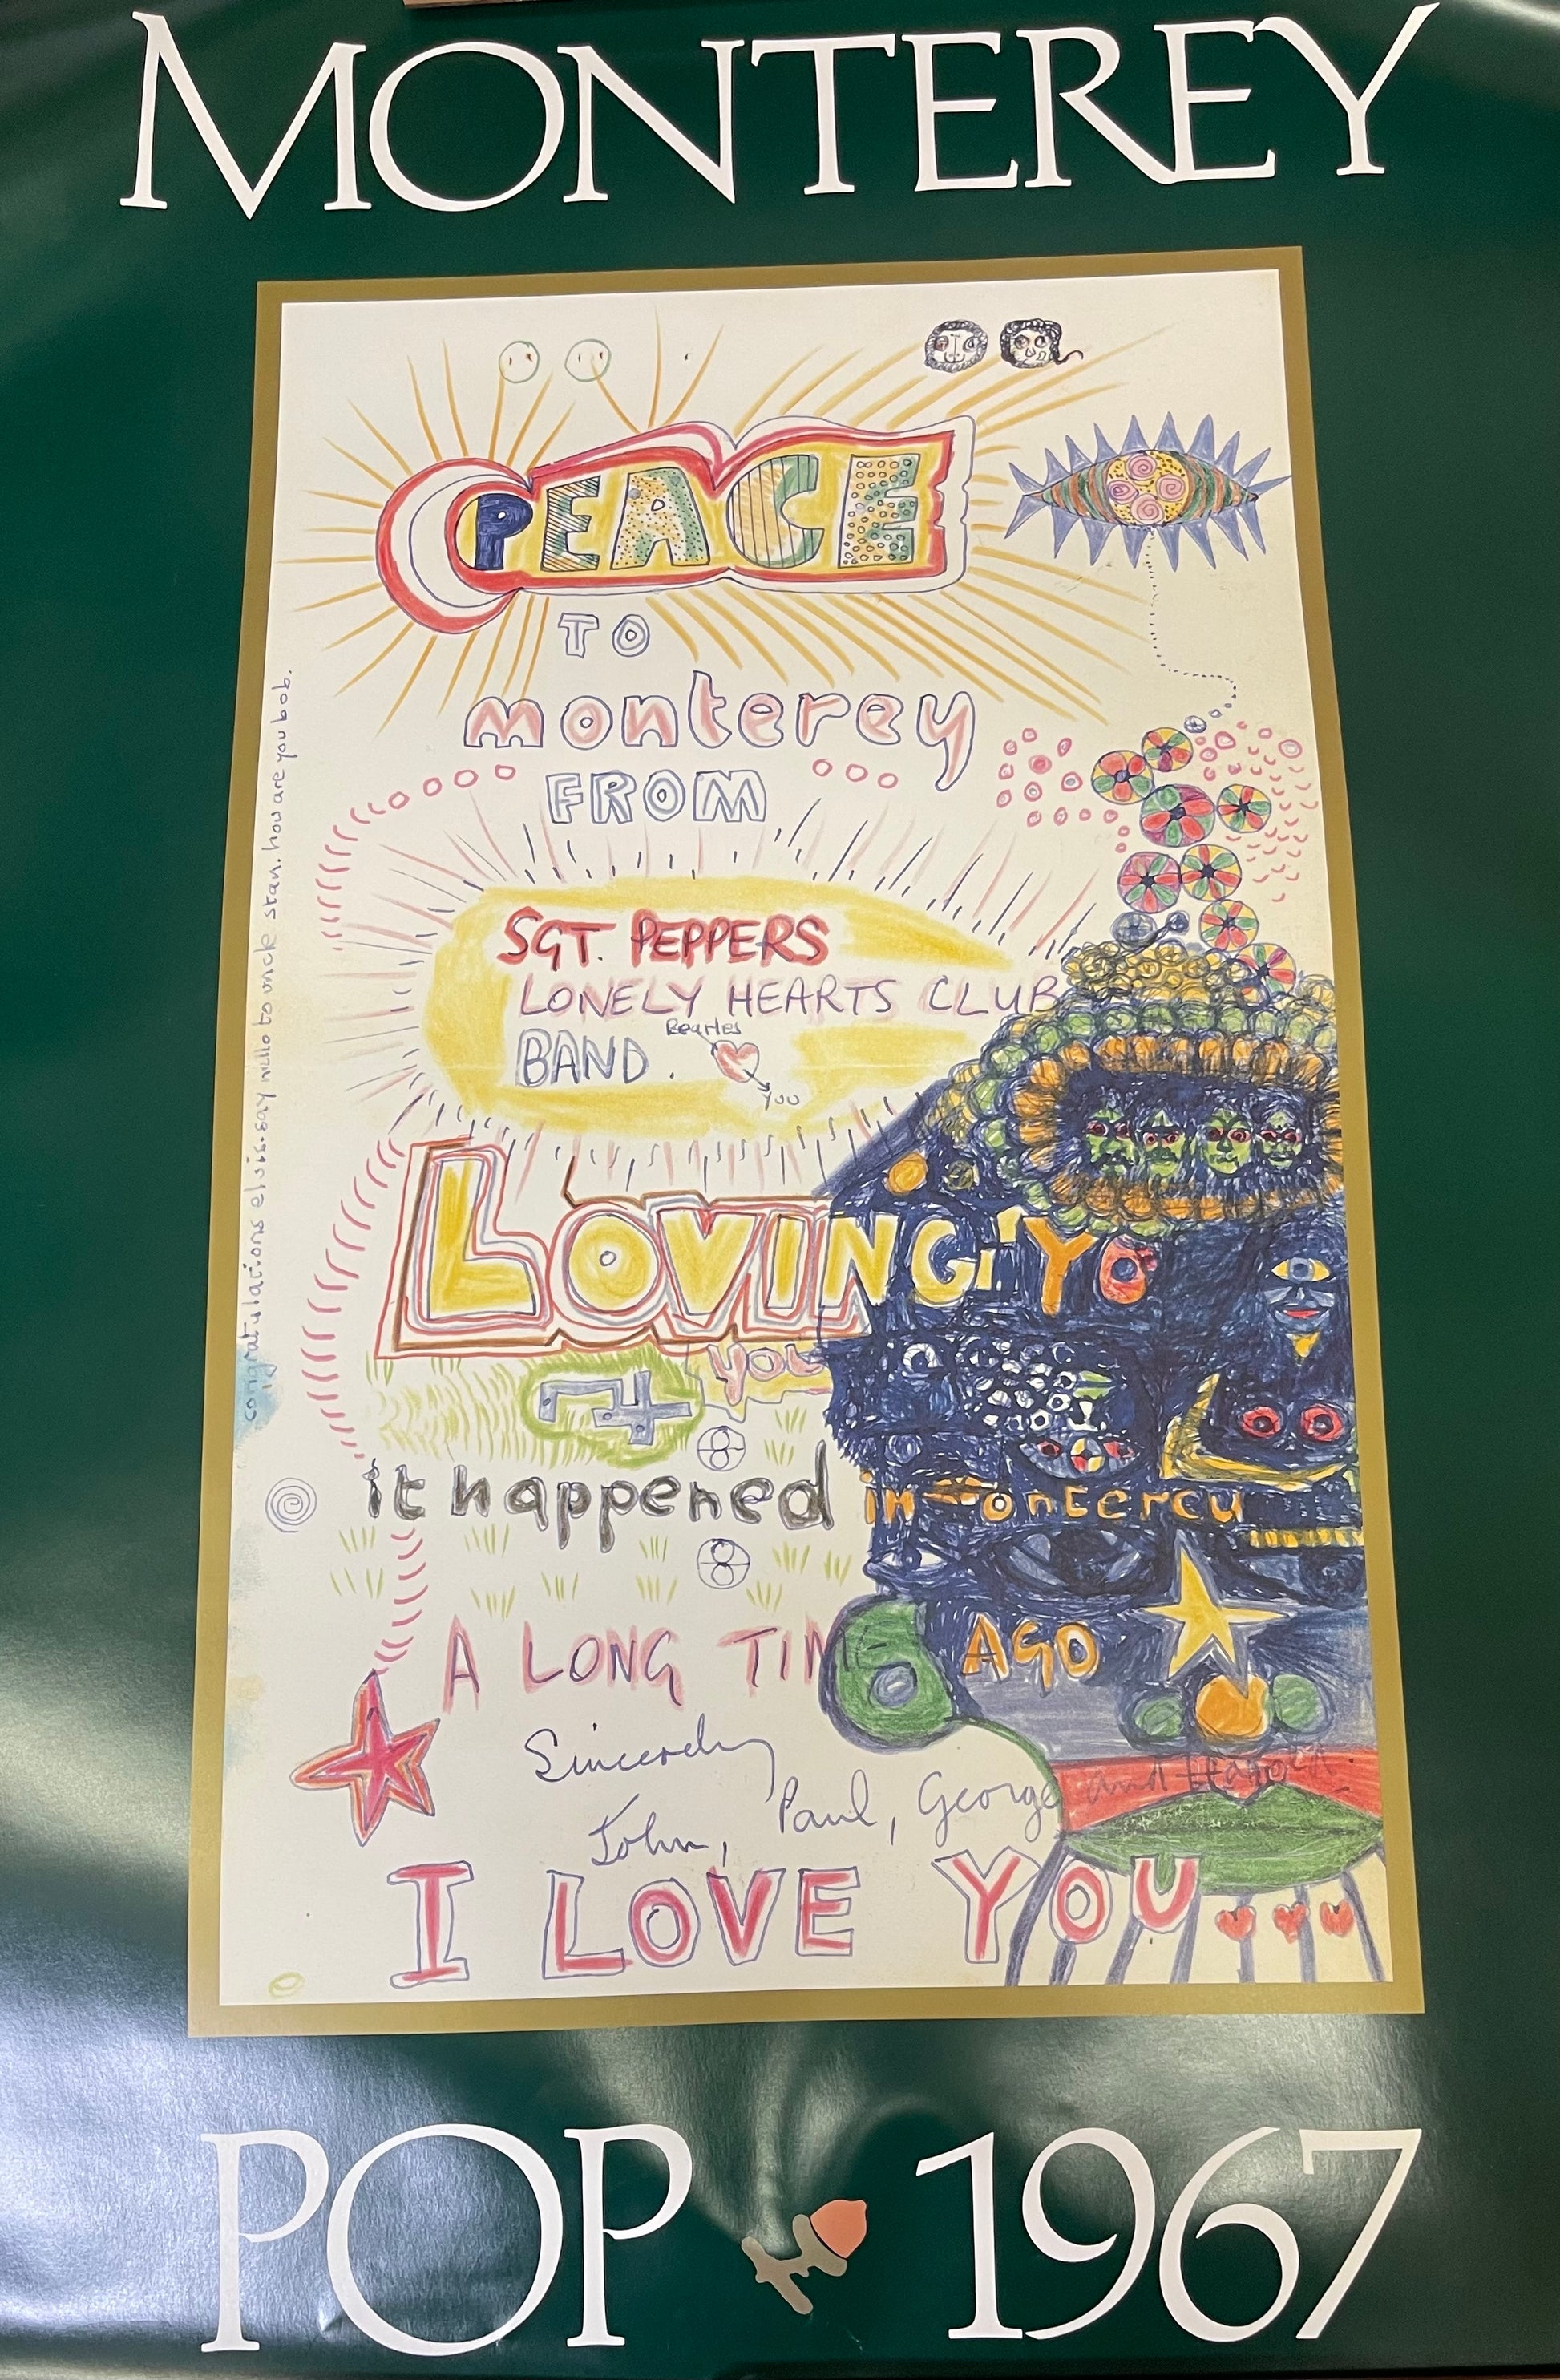 MONTEREY
PEACE
TO
monterey
FROM
SGT. PEPPERS
LONELY HEARTS CLUB
BAND.
Beatles
YOU
LOVING YO
you
it happened in monterey
8
8
A LONG TIME AGO
Sincerely
John, Paul, George and Harold.
I LOVE YOU
congratulations elvis. say hullo to uncle stan. how are you bob.
POP 1967